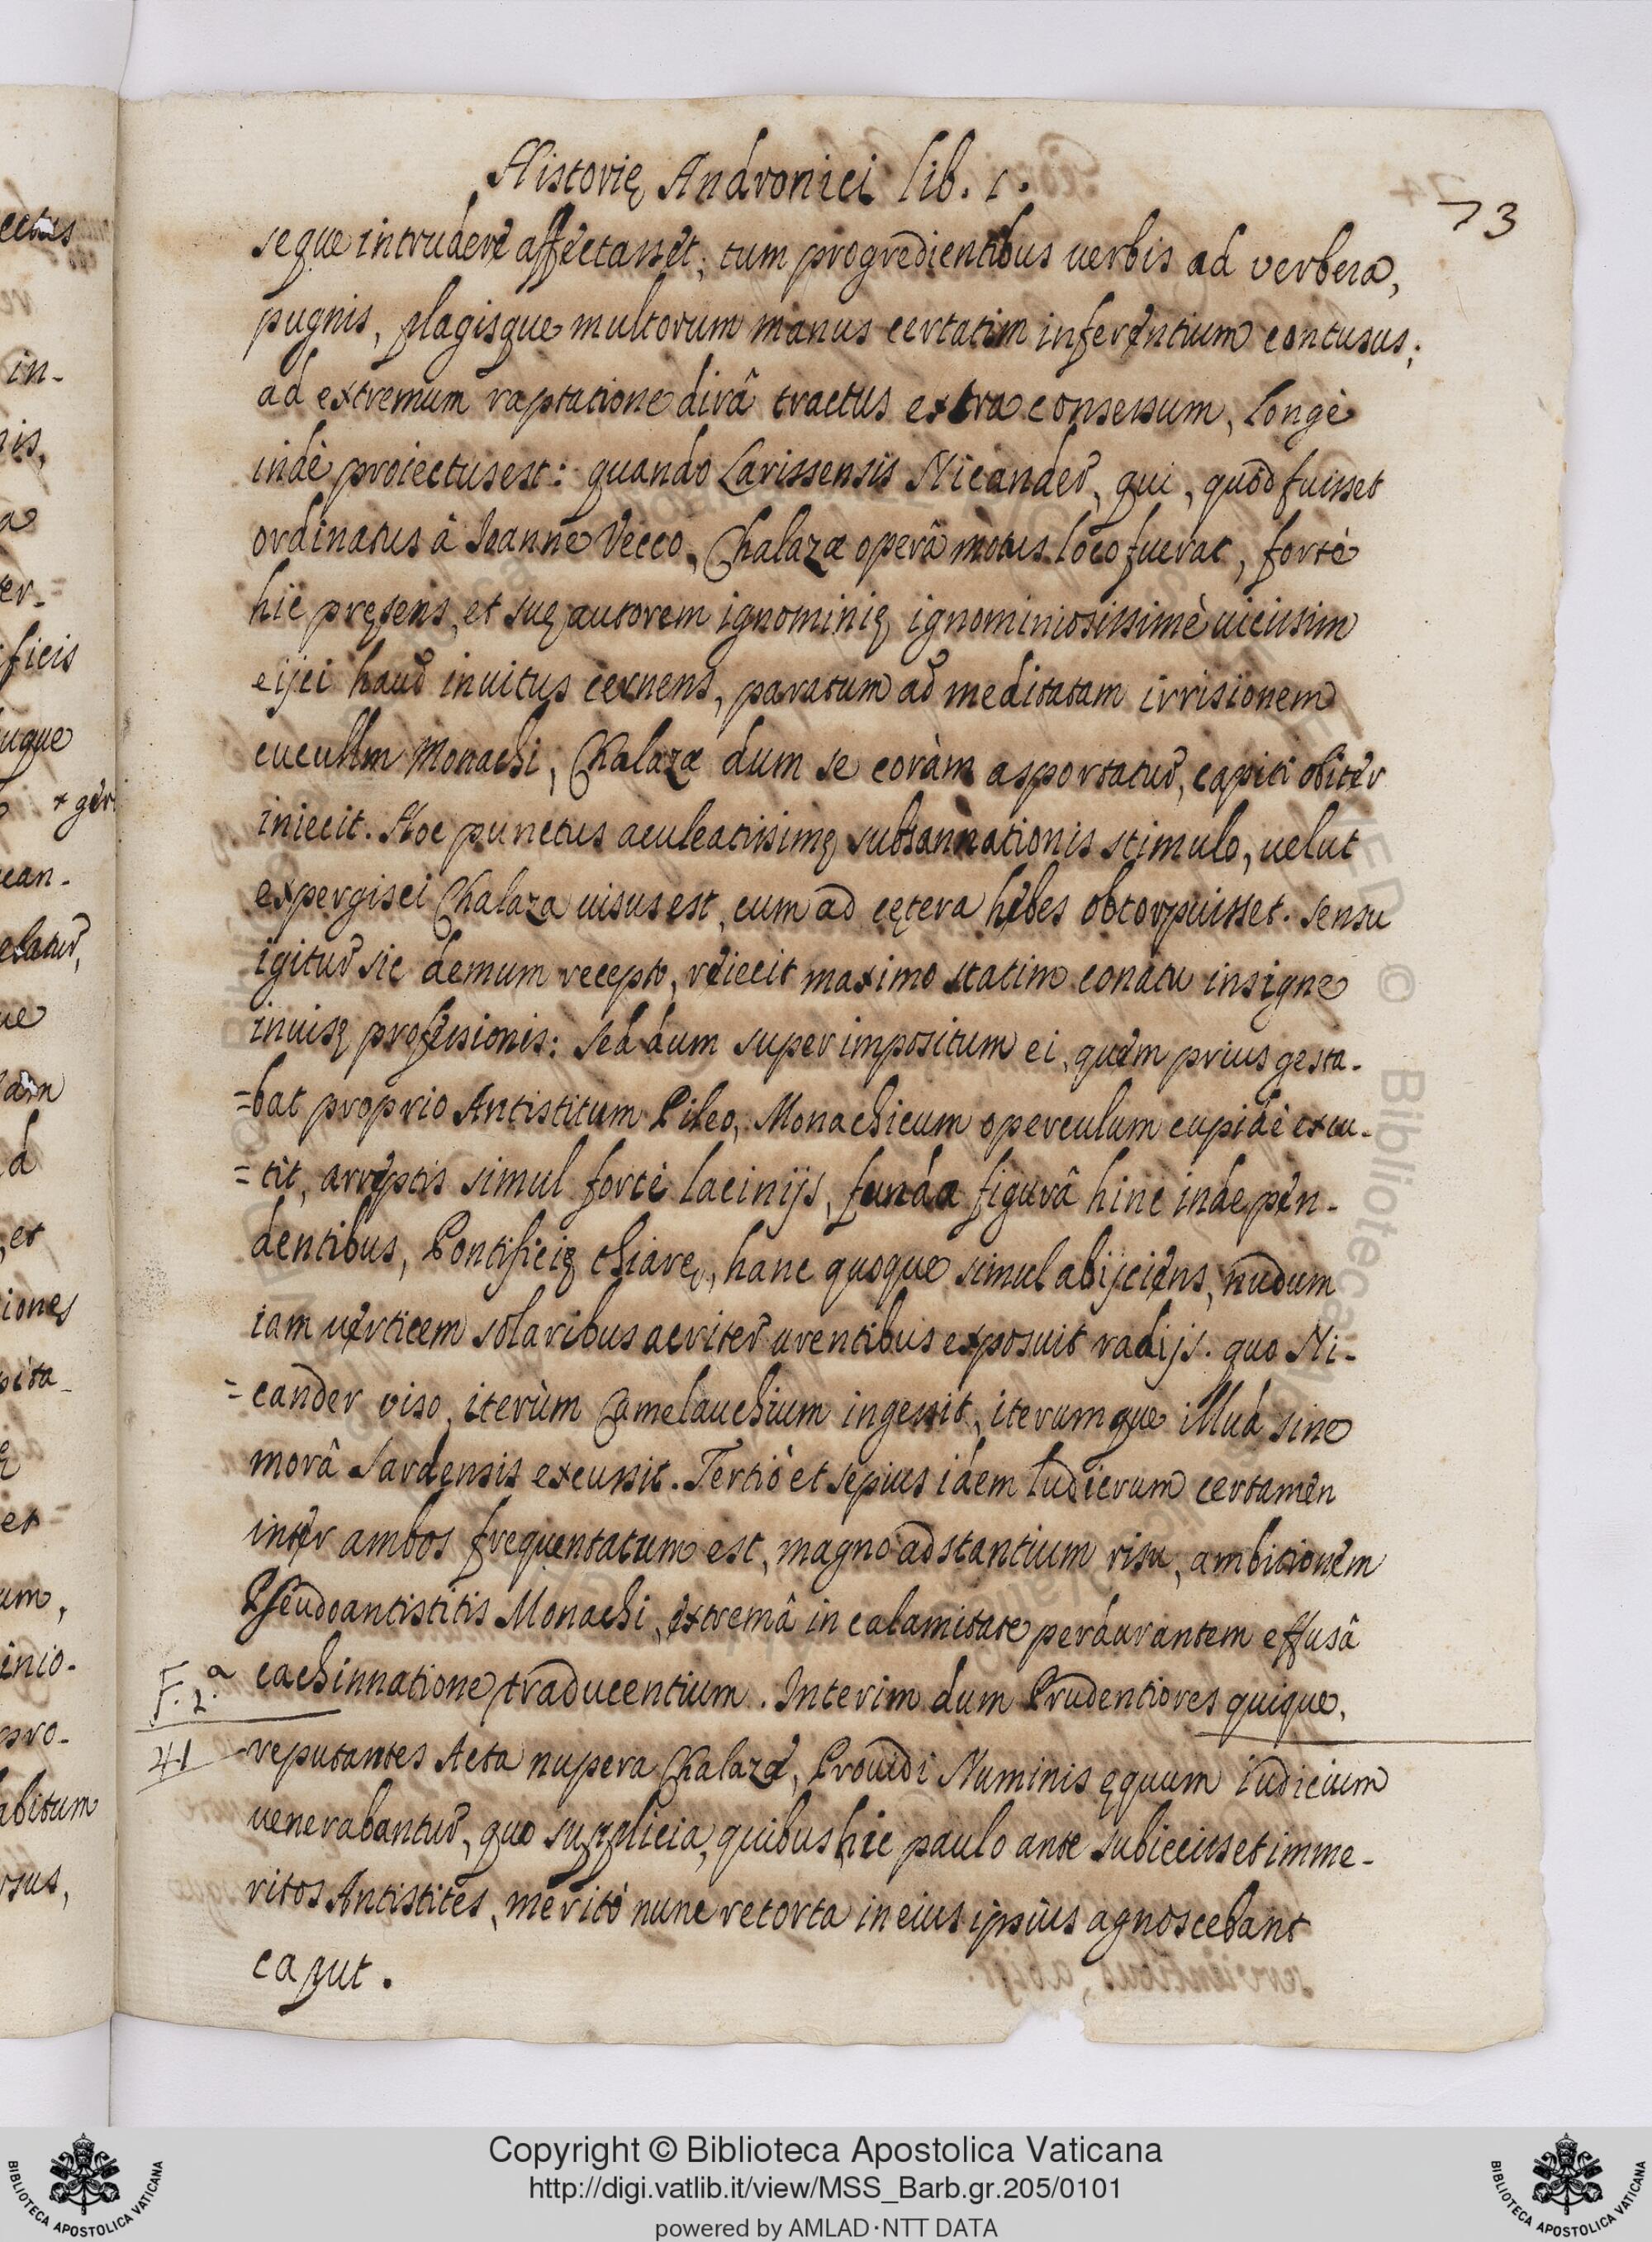 Historię Andronici lib. 1.
73
seque intrudere affectasset; tum progredientibus uerbis ad verbera,
pugnis, plagisque multorum manus certatim inferentium contusus;
ad extremum raptatione dirâ tractus extra consessum, longè
indè proiectus est: quando Larissensis Nicander, qui, quòd fuisset
ordinatus à Ioanne Vecco, Chalazæ operâ motus loco fuerat, fortè
hîc pręsens, et suę autorem ignominię ignominiosissimè uicissim
eijci haud inuitus cernens, paratum ad meditatam irrisionem
cucullm Monachi, Chalazæ dum se coràm asportatur, capiti obiter
iniecit. Hoc punctus aculeatissimę subsannationis stimulo, uelut
expergisci Chalaza uisus est, cum ad cętera hebes obtorpuisset. Sensu
igitur sic demum recepto, reiecit maximo statim conatu insigne
inuisę professionis: sed dum super impositum ei, quem prius gesta-
=bat proprio Antistitum Pileo, Monachicum operculum cupidè excu-
=tit, arreptis simul fortè lacinijs, fundæ figurâ hinc inde pen-
dentibus, Pontificię thiarę, hanc quoque simul abijciens, nudum
iam uerticem solaribus acriter urentibus exposuit radijs. quo Ni-
=cander viso, iterùm Camelauchium ingessit, iterumque illud sine
morâ Sardensis excussit. Tertiò et sępius idem ludicrum certamen
inter ambos frequentatum est, magno adstantium risu, ambitionem
Pseudoantistitis Monachi, extremâ in calamitate perdurantem effusâ
F. 2.a
cachinnatione traducentium. Interim dum Prudentiores quique,
41
reputantes Acta nupera Chalazæ, Prouidi Numinis ęquum iudicium
uenerabantur, quo supplicia, quibus hic paulo ante subiecisset imme-
ritos Antistites, meritò nunc retorta in eius ipsius agnoscebant
caput.
Copyright © Biblioteca Apostolica Vaticana
http://digi.vatlib.it/view/MSS_Barb.gr.205/0101
powered by AMLAD·NTT DATA
BIBLIOTECA APOSTOLICA VATICANA
BIBLIOTECA APOSTOLICA VATICANA